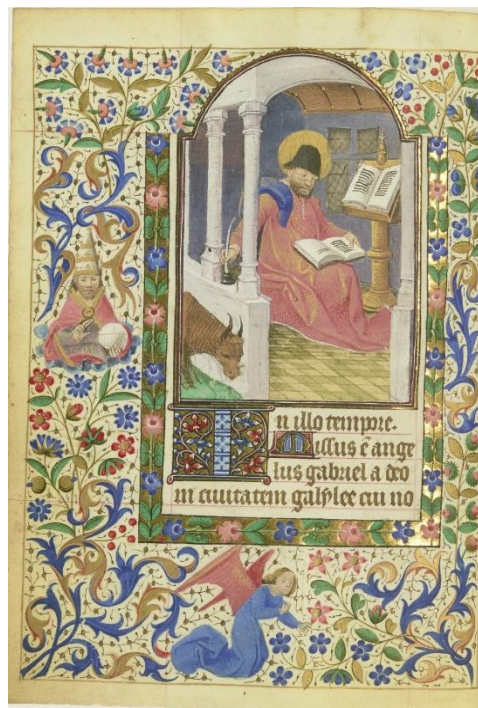 In illo tempore.
Missus ē ange
lus gabriel a deo
in ciuitatem galylee cui no